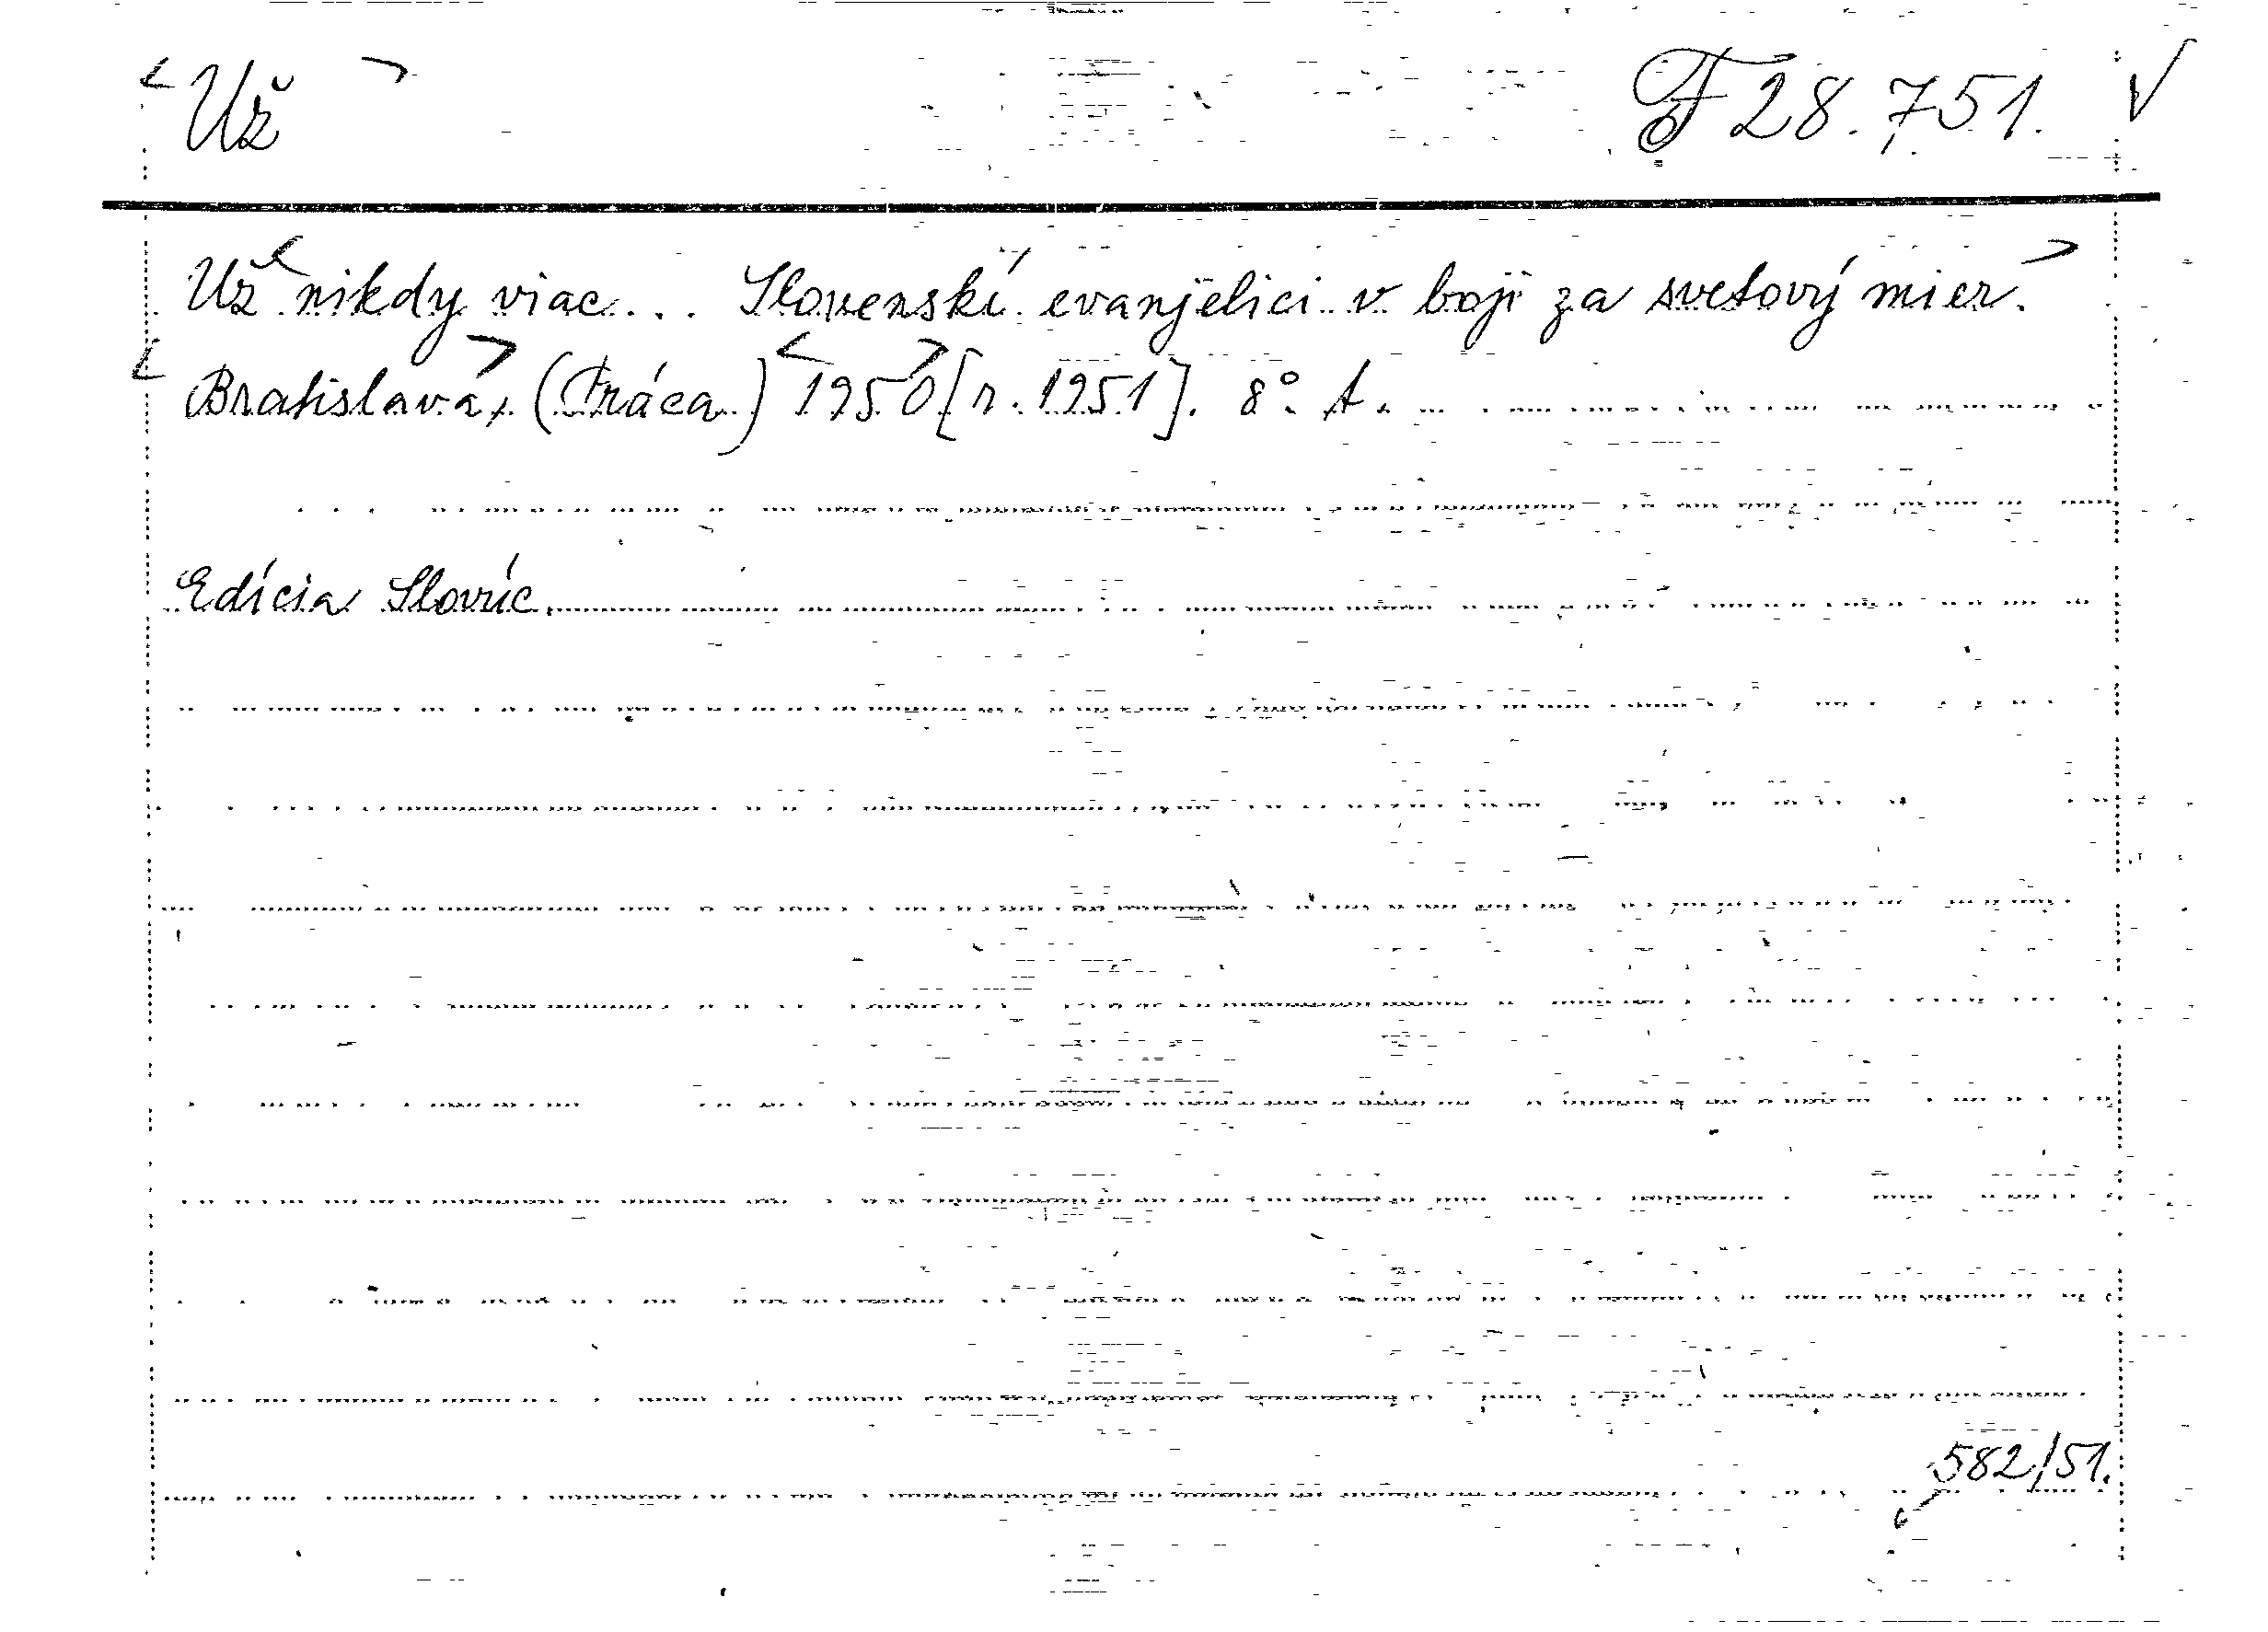 Už F 28.751.
Už nikdy viac... Slovenskí evanjelici v boji za svetový mier.
Bratislava, (Práca) 1950 [r. 1951]. 8°. A.
Edícia Slovíc.
582/51.